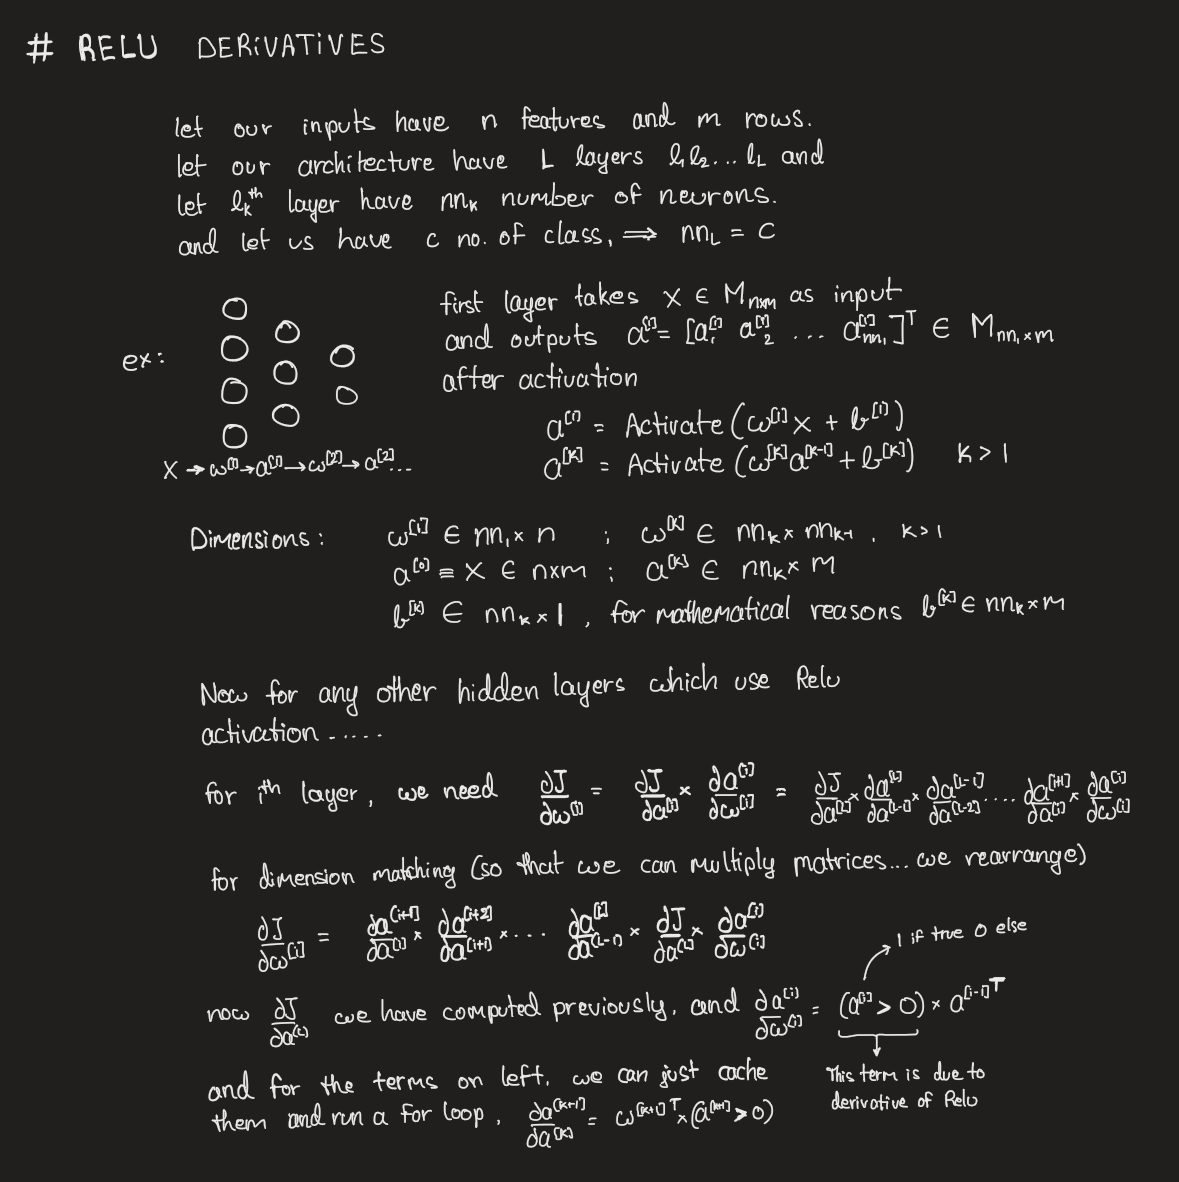 # RELU DERIVATIVES
let our inputs have n features and m rows.
let our architecture have L layers l₁ l₂ ... l_L and
let l_kᵗʰ layer have nn_k number of neurons.
and let us have c no. of class, ⟹ nn_L = C
first layer takes X ∈ M_{n×m} as input
and outputs a^[1] = [a₁^[1] a₂^[1] ... a_{nn₁}^[1]]^T ∈ M_{nn₁×m}
after activation
ex:
a^[1] = Activate (ω^[1] X + b^[1])
a^[k] = Activate (ω^[k] a^[k-1] + b^[k]) k > 1
X → ω^[1] → a^[1] → ω^[2] → a^[2] ...
Dimensions: ω^[1] ∈ nn₁ × n ; ω^[k] ∈ nn_k × nn_{k-1} , k > 1
a^[0] ≡ X ∈ n×m ; a^[k] ∈ nn_k × m
b^[k] ∈ nn_k × 1 , for mathematical reasons b^[k] ∈ nn_k × m
Now for any other hidden layers which use Relu
activation .....
for iᵗʰ layer, we need ∂J/∂ω^[i] = ∂J/∂a^[i] × ∂a^[i]/∂ω^[i] = ∂J/∂a^[L] × ∂a^[L]/∂a^[L-1] × ∂a^[L-1]/∂a^[L-2] .... ∂a^[i+1]/∂a^[i] × ∂a^[i]/∂ω^[i]
for dimension matching (so that we can multiply matrices... we rearrange)
∂J/∂ω^[i] = ∂a^[i+1]/∂a^[i] × ∂a^[i+2]/∂a^[i+1] × ... ∂a^[L]/∂a^[L-1] × ∂J/∂a^[L] × ∂a^[i]/∂ω^[i]
1 if true 0 else
now ∂J/∂a^[L] we have computed previously, and ∂a^[i]/∂ω^[i] = (a^[i] > 0) × a^[i-1]^T
This term is due to
derivative of Relu
and for the terms on left, we can just cache
them and run a for loop, ∂a^[k+1]/∂a^[k] = ω^[k+1]^T × (a^[k+1] > 0)